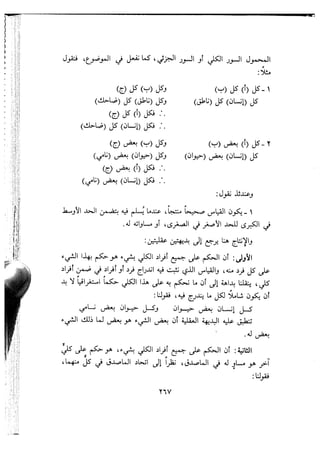 المحمول السور الكلي أو السور الجزئي، كما نفعل في الموضوع، فنقول
مثلاً:
١ - كل (أ) كل (ب) وكل (ب) كل (ج)
كل (إنسان) كل (ناطق) وكل (ناطق) كل (ضاحك)
∴ فكل (أ) كل (ج)
∴ فكل (إنسان) كل (ضاحك)
٢ - كل (أ) بعض (ب) وكل (ب) بعض (ج)
كل (إنسان) بعض (حيوان) وكل (حيوان) بعض (نامي)
∴ فكل (أ) بعض (ج)
∴ فكل (إنسان) بعض (نامي)
وعندئذ نقول:
١ - يكون القياس صحيحاً منتجاً، عندما يُسلم فيه بتضمن الحد الأوسط
في الكبرى للحد الأصغر في الصغرى، أو مساواته له.
والإنتاج هنا يرجع إلى بديهتين عقليتين:
الأولى: أن الحكم على جميع أفراد الكلي بشيء هو حكم بهذا الشيء
على كل فرد منه، والقياس الذي نثبت فيه اندراج فرد أو أفراد في ضمن أفراد
كلي، ينقلنا بداهة إلى أن ما نحكم به على هذا الكلي حكماً استغراقياً لا بد
أن يكون شاملاً لكل ما يندرج فيه، فقولنا:
كل إنسان بعض حيوان وكل حيوان بعض نامي
تنطبق عليه البديهة العقلية أن بعض الشيء هو بعض لما ذلك الشيء
بعض له.
الثانية: أن الحكم على جميع أفراد الكلي بشيء، هو حكم على كلي
آخر هو مساو له في الماصدق، نظراً إلى اتحاد الماصدق في كل منهما،
فقولنا:
٢٦٧